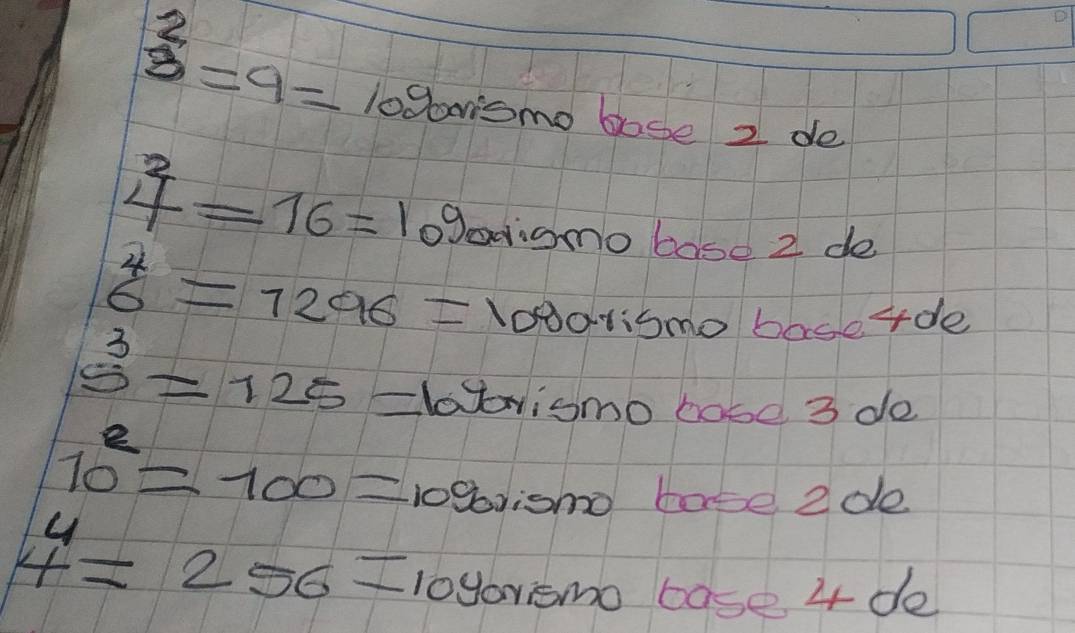 3² = 9 = logarismo base 2 de
4² = 16 = logarismo base 2 de
6⁴ = 1296 = logarismo base 4 de
5³ = 125 = logarismo base 3 de
10² = 100 = logarismo base 2 de
4⁴ = 256 = logarismo base 4 de